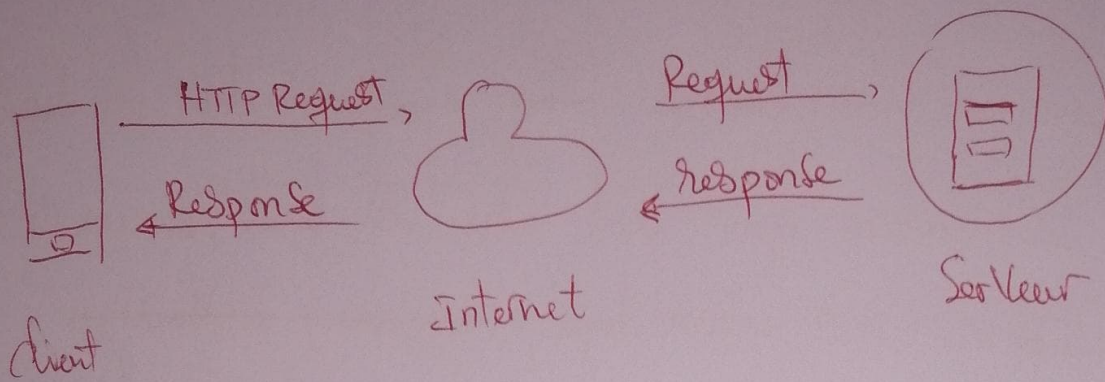 HTTP Request
Request
Response
response
Client
Internet
Serveur